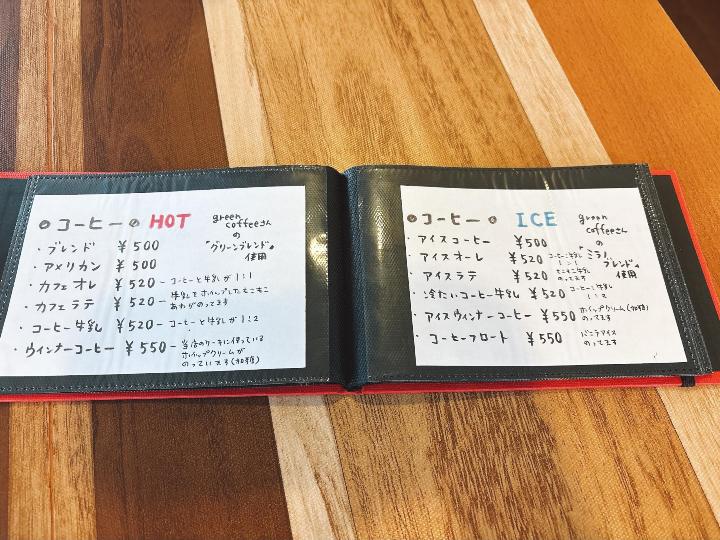 コーヒー HOT
green
coffeeさん
の
「グリーンブレンド」
使用
・ブレンド ¥500
・アメリカン ¥500
・カフェオレ ¥520 — コーヒーと牛乳が1:1
・カフェラテ ¥520 — 牛乳をホイップしたもこもこ
あわがのってます
・コーヒー牛乳 ¥520 — コーヒーと牛乳が1:2
・ウィンナーコーヒー ¥550 — 当店のケーキに使っている
ホイップクリームが
のっています(加糖)
コーヒー ICE
green
coffeeさん
の
ブレンド」
使用
・アイスコーヒー ¥500
・アイスオーレ ¥520 コーヒー:牛乳
1:1
・アイスラテ ¥520 もこもこ牛乳
のってます
・冷たいコーヒー牛乳 ¥520 コーヒー:牛乳
1:2
・アイスウィンナーコーヒー ¥550 ホイップクリーム(加糖)
のってます
・コーヒーフロート ¥550 バニラアイス
のってます